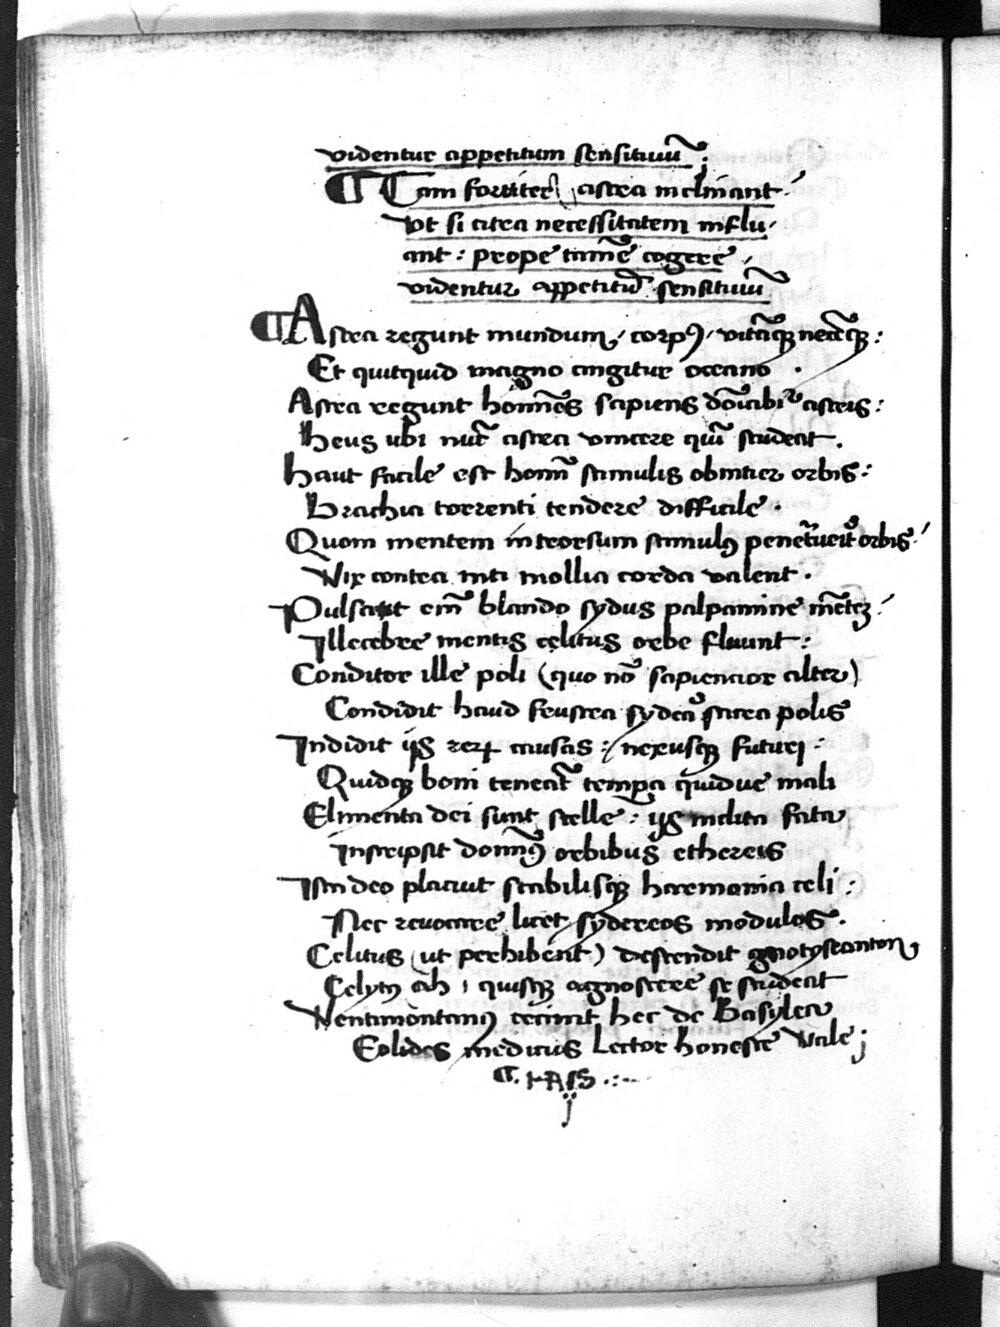 videntur appetitum sensituiū;
¶ Tam fortiter astra inclinant·
Vt si citra necessitatem influ·
ant: prope tamē cogere
videntur appetitū sensitiuū
¶ Astra regunt mundum, corpꝰ, vitāqꝫ necēqꝫ:
Et quitquid magno cingitur occano ·
Astra regunt homīes sapiens dōīabit᷑ astris:
Heus ubi nūc astra vincere qui studeat.
Haut facile est homī stimulis obniti orbis:
Brachia torrenti tendere difficile·
Quom mentem introrsum stimulꝰ penet᷑uerit orbis·
Vix contra niti mollia corda valent·
Pulsant em̄ blando sydus palpamine mētē
Illecebre mentis celitus orbe fluunt:
Conditor ille poli (quo nō sapiencior alter)
Condidit haud frustra sydeꝰ astra polis
Indidit ijs rerꝝ causas: nexusqꝫ futuri:
Quidqꝫ boni teneāt tempꝰa quidue mali
Elimenta dei sunt stelle: ijs indita fata
Inscripsit domīꝰ orbibus ethereis
Ista deo placuit stabilisqꝫ harmonia celi:
Nec reuocare licet sydereos modulos·
Celitus (ut perhibent) descendit gnotyseanton
quisqꝫ agnoscere se studeat
Ventimontanꝰ cecinit hec de Basylea
Eolides medicus Lector honeste Vale;